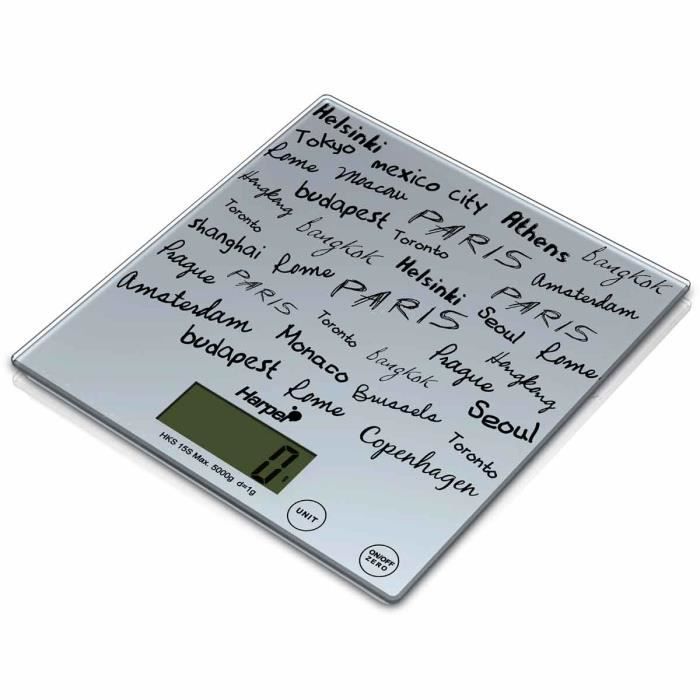 Helsinki
Tokyo mexico city Athens Bangkok
Rome Moscow PARIS Amsterdam
Hongkong budapest Toronto PARIS Rome
Toronto Bangkok Helsinki Seoul Hongkong
shanghai Rome PARIS Prague Seoul
Prague PARIS Toronto Bangkok Toronto
Amsterdam Monaco Brussels Copenhagen
budapest Rome
Harper
0
HKS 15S Max. 5000g d=1g
UNIT
ON/OFF
ZERO